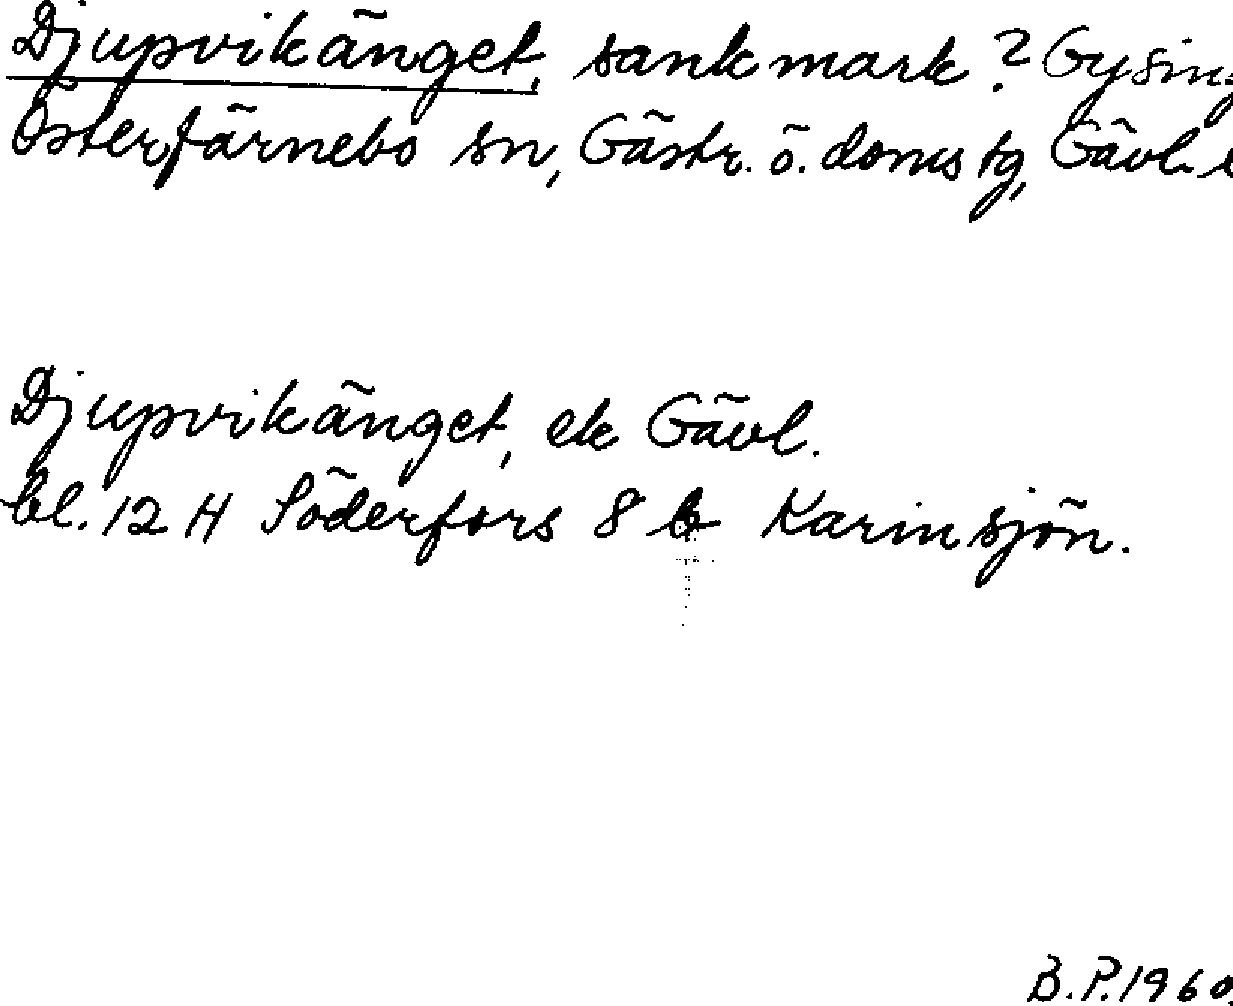 Djupvikänget, sankmark? Gysing
Österfärnebo sn, Gästr. ö. doms tg, Gävl. l
Djupvikänget, ek Gävl.
bl. 12 H Söderfors 8 b Karinsjön.
B.P. 1960.